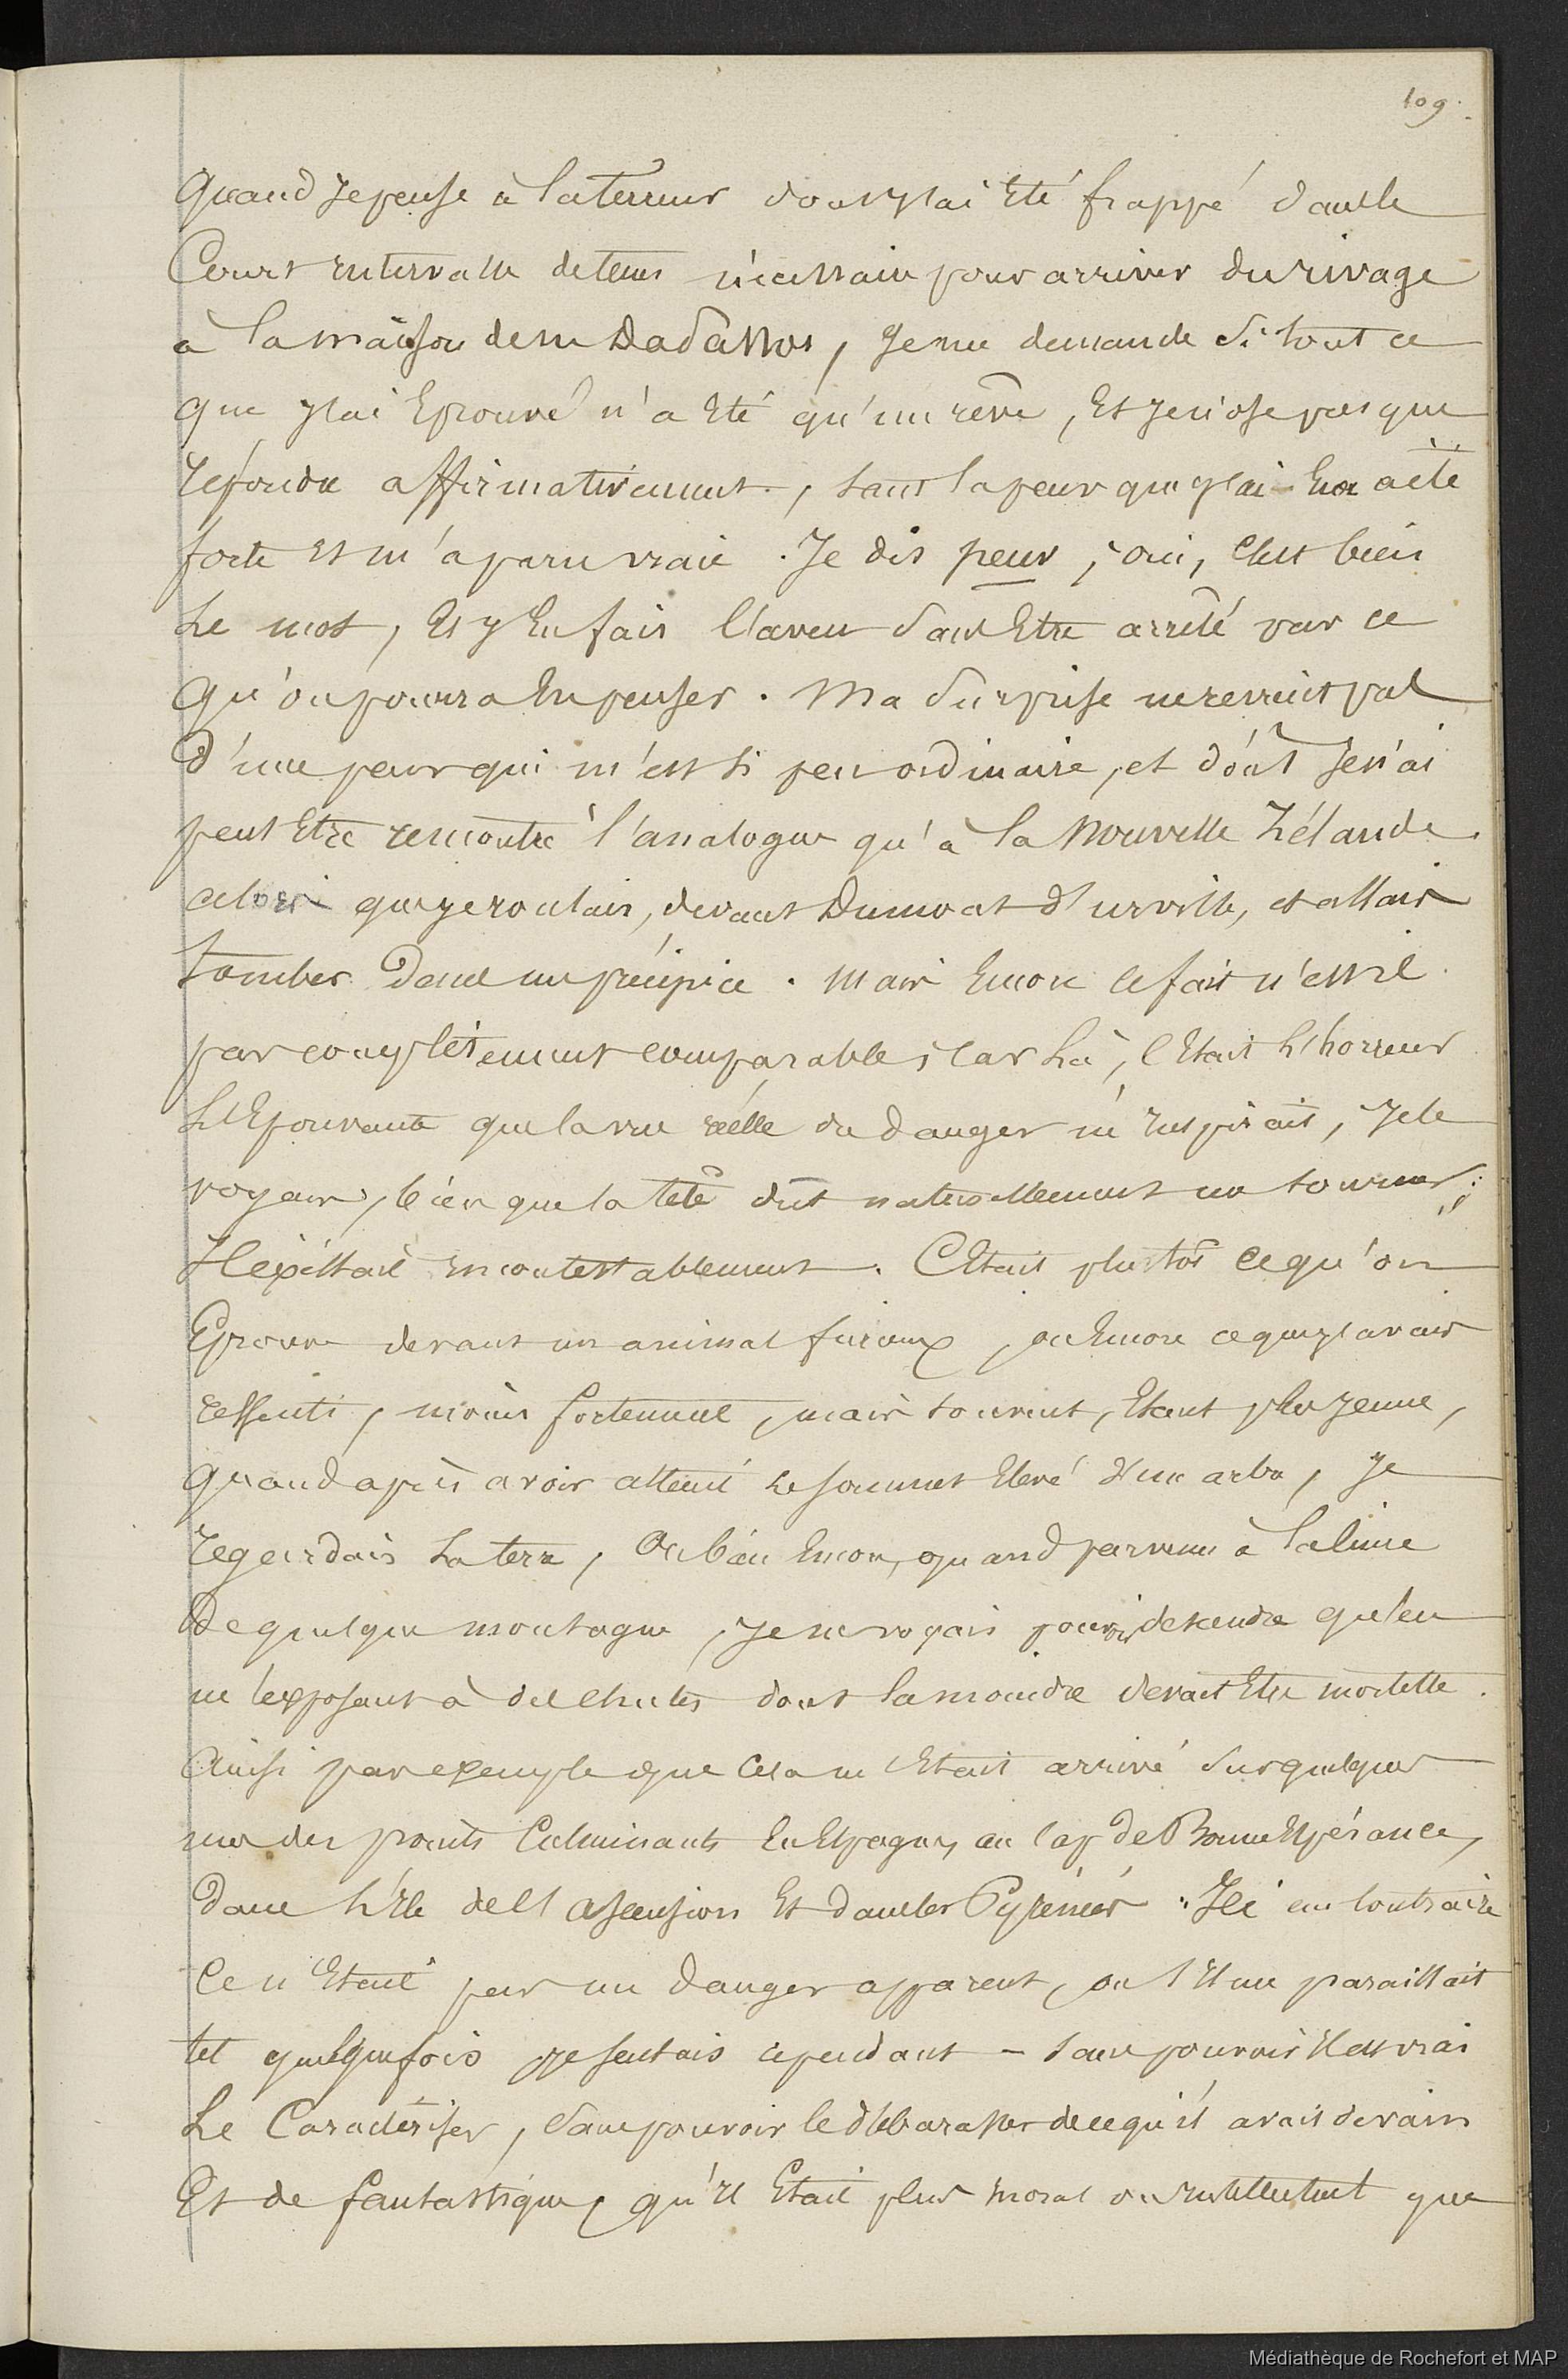 109.
Quand je pense à la terreur dont j'ai été frappé dans le
Court intervalle de tems nécessaire pour arriver du rivage
à la maison de m Dadassos, je me demande si tout ce
que j'ai éprouvé n'a été qu'un rêve, et je n'ose presque
répondre affirmativement, tant la peur que j'ai eue a été
forte et m'a paru vraie. Je dis peur, oui, c'est bien
Le mot, et j'en fais l'aveu sans être arrêté par ce
qu'on pourra en penser. Ma surprise ne revient pas
d'une peur qui m'est si peu ordinaire, et dont je n'ai
peut être rencontré l'analogue qu'à la Nouvelle Zélande
alors que je roulais, devant Dumont d'Urville, et allais
tomber dans un précipice. Mais encore le fait n'est il
pas complètement comparable, car là, c'était l'horreur
L'épouvante que la vue réelle du danger m'inspirait, je le
voyais, bien que la tête dut naturellement me tourner;
Il existait incontestablement. C'était plustôt ce qu'on
Éprouve devant un animal furieux, ou encore ce que j'avais
ressenti, moins fortement, mais souvent, étant plus jeune,
quand après avoir atteint le sommet élevé d'un arbre, je
regardais la terre, ou bien encore, quand parvenu à la cime
De quelque montagne, je ne voyais pouvoir descendre qu'en
m'exposant à des chutes dont la moindre devait être mortelle.
Ainsi par exemple que cela m'était arrivé sur quelques
uns des points culminants en Espagne, au cap de Bonne Espérance,
dans l'ile de l'ascension et dans les Pyrénées. Ici au contraire
Ce n'était pas un danger apparent, ou s'il me paraissait
tel quelquefois je sentais cependant - sans pouvoir il est vrai
Le Caractériser, sans pouvoir le débarasser de ce qu'il avait de vain
Et de fantastique, qu'il était plus moral ou intellectuel que
Médiathèque de Rochefort et MAP